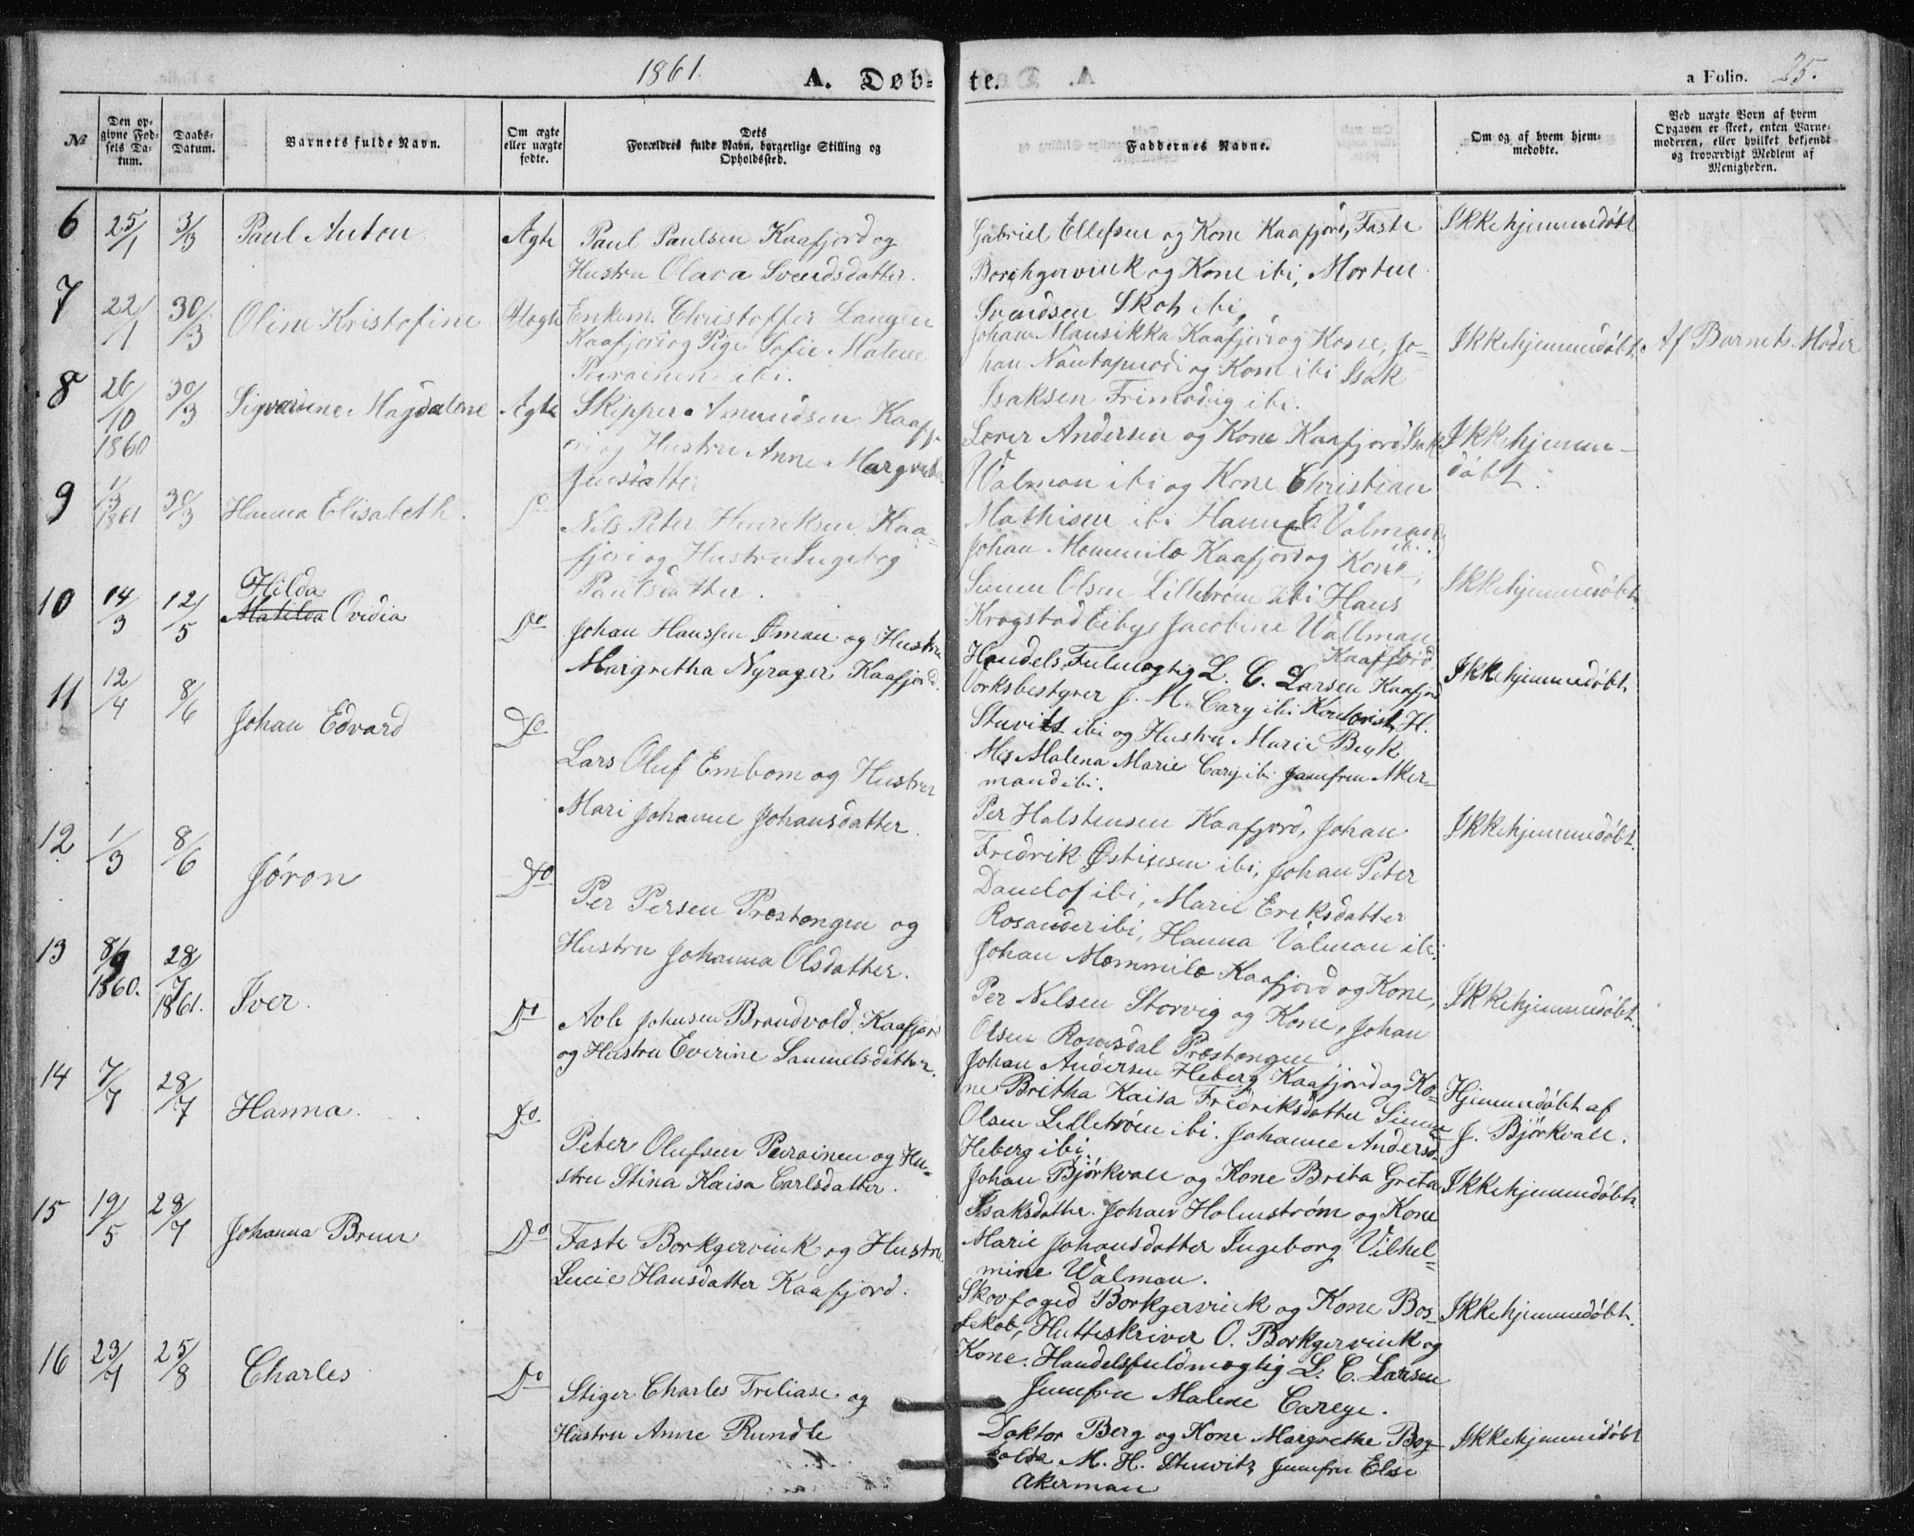 1861.
A. Døb-
te.
a Folio. 25.
№
Den op-
givne Fød-
sels Da-
tum.
Daabs-
Datum.
Barnets fulde Navn.
Om ægte
eller uægte
fødte.
Dets
Forældres fulde Navn, borgerlige Stilling og
Opholdssted.
Faddernes Navne.
Om og af hvem hjem-
medøbte.
Ved uægte Børn af hvem
Opgaven er skeet, enten Barne-
moderen, eller hvilket bekjendt
og troværdigt Medlem af
Menigheden.
6
25/1
3/3
Paul Anton
Ægte
Paul Paulsen Kaafjord og
Hustru Olava Svendsdatter.
Gabriel Ellefsen og Kone Kaafjord, Faste
Borchgervink og Kone ibi, Morten
Svendsen Skot ibi
Ikke hjemmedøbt
7
22/1
30/3
Oline Kristofine
Uægte
Enkem. Christoffer Langen
Kaafjord og Pige Sofie Malene
Peirainen ibi.
Johan Mansikka Kaafjord og Kone, Jo-
han Nautapuodi og Kone ibi Isak
Isaksen Frimodig ibi.
Ikke hjemmedøbt.
Af Barnets Moder
8
26/10
1860
30/3
Sigvarine Magdalene
Ægte
Skipper Amundsen Kaafj-
ord og Hustru Anne Margrethe
Jensdatter
Lærer Andersen og Kone Kaafjord Isak
Valman ibi og Kone Christian
Mathisen ibi Hanna C. Valman
ibi.
Ikke hjemme-
døbt.
9
1/3
1861
30/3
Hanna Elisabeth.
Do
Nils Peter Henriksen Kaa-
fjord og Hustru Ingebog
Paulsdatter.
Johan Mommilo Kaafjord og Kone,
Simen Olsen Lillestrøm ibi Hans
Krogstad Eiby Jacobine Wallman
Kaafjord
Ikke hjemmedøbt.
10
14/3
12/5
Hilda
Matilda Ovidia
Do
Johan Hanssen Øman og Hustru
Margretha Nyrager Kaafjord.
Handels Fulmægtig L. C. Larsen Kaafjord
Værksbestyrer J. M. Cary ibi Kontorist H.
Stuvits ibi og Hustru Marie Buyk
Mis Malena Marie Cary ibi Jumfru Aker-
mand ibi.
Ikke hjemmedøbt.
11
12/4
8/6
Johan Edvard
Do
Lars Oluf Embom og Hustru
Mari Johanne Johansdatter.
Per Halstensen Kaafjord, Johan
Fredrik Østinsen ibi, Johan Peter
Danelof ibi, Marie Eriksdatter
Rosander ibi, Hanna Valman ibi.
Ikke hjemmedøbt.
12
1/3
8/6
Jøron
Do
Per Persen Præstengen og
Hustru Johanna Olsdatter.
Johan Mommilo Kaafjord og Kone,
Per Nelsen Storvig og Kone, Johan
Olsen Romsdal Præstengen
Ikke hjemmedøbt.
13
8/9
1860.
28/7
1861.
Iver.
Do
Aole Johnsen Brandvold. Kaafjord
og Hustru Everine Samuelsdatter.
Johan Andersen Heberg Kaafjord og Ko-
ne Britha Kaisa Fredriksdatter Simen
Olsen Lillestrøm ibi. Johanne Andersd.
Heberg ibi.
Hjemmedøbt af
J. Björkvall.
14
7/7
28/7
Hanna.
Do
Peter Olufsen Peirainen og Hu-
stru Stina Kaisa Carlsdatter.
Johan Bjørkvall og Kone Brita Greta
Isaksdatter. Johan Holmstrøm og Kone
Marie Johansdatter Ingeborg Vilhel-
mine Walman.
Ikke hjemmedøbt.
15
19/5
28/7
Johanna Brun
Do
Faste Borkgervink og Hustru
Lucie Hansdatter Kaafjord.
Skovfoged Borkgervink og Kone Bos-
sekob, Hutteskriver O. Borkgervink og
Kone. Handelsfuldmægtig L. C. Larsen
Jumfru Malene Carege.
Ikke hjemmedøbt.
16
23/4
25/8
Charles
Do
Stiger Charles Treliase og
Hustru Anne Rundle
Doktor Berg og Kone Margrethe
M. H. Stuwitz Jumfru Elise
Akerman
Ikke hjemmedøbt